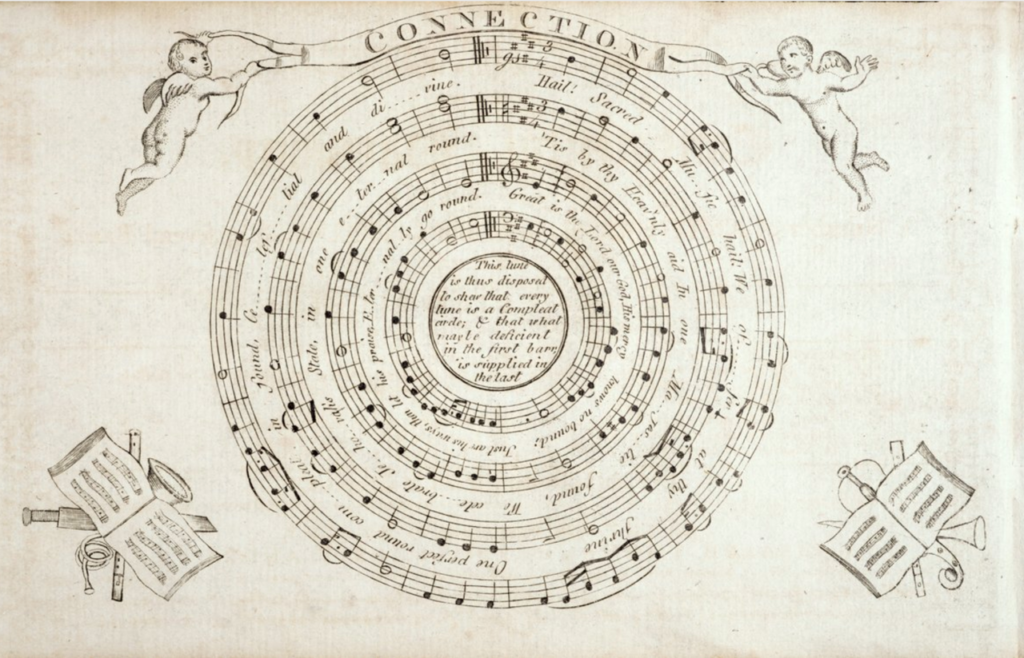 CONNECTION
Hail! Sacred Mu...sic hail. We at thy shrine
One perfect round com...pleat in sound, Ce...les...tial and di...vine.
'Tis by thy Heav'nly aid In one Ma...jes...tic sound,
We cele...brate Je...ho...vahs State, in one e...ter...nal round.
Great is the Lord our God, His mercy knows no bound;
Just are his ways, then let his praise, E...ter...nal...ly go round.
This tune
is thus disposed
to shew that every
tune is a Compleat
circle; & that what
may be deficient
in the first barr,
is supplied in
the last